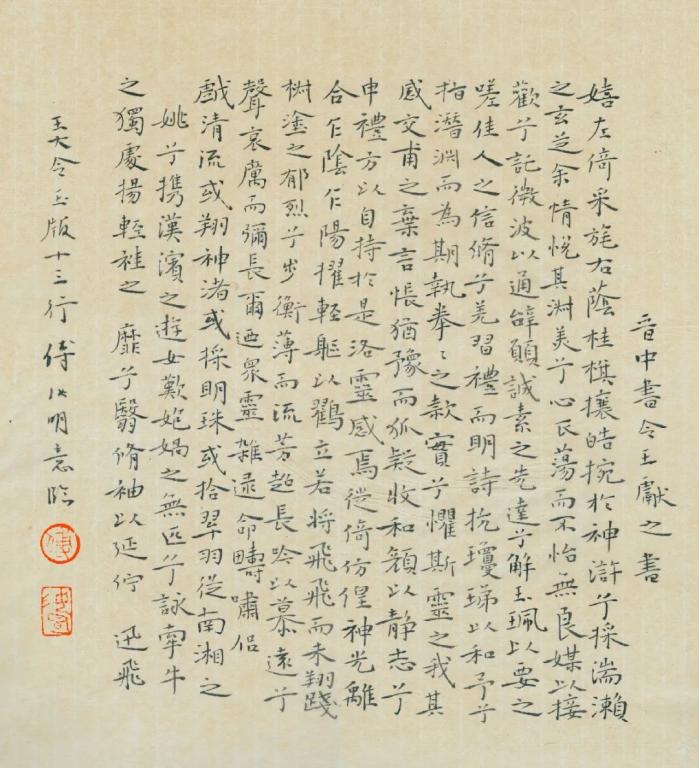 晉中書令王獻之書
嬉左倚采旄右蔭桂棋攘皓捥於神滸兮採湍瀨
之玄芝余情悅其淑美兮心蕩而不怡無良媒以接
歡兮託微波以通辭願誠素之先達兮解玉珮以要之
嗟佳人之信脩兮羌習禮而明詩抗瓊珶以和予兮
指潛淵而為期執拳〻之款實兮懼斯靈之我其
感交甫之棄言悵猶豫而狐疑收和顏以静志兮
申禮方以自持於是洛靈感焉徙倚仿偟神光離
合乍陰乍陽擢輕軀以鸖立若將飛飛而未翔踐
椒塗之郁烈兮步衡薄而流芳超長吟以慕遠兮
聲哀厲而彌長爾迺衆靈雜遝命疇嘯侶
戲清流或翔神渚或採明珠或拾翠羽從南湘之
姚兮携漢濱之遊女歎匏媧之無匹兮詠牽牛
之獨處揚輕袿之 靡兮翳脩袖以延佇 迅飛
王大令玉版十三行 傅以明意臨
傅